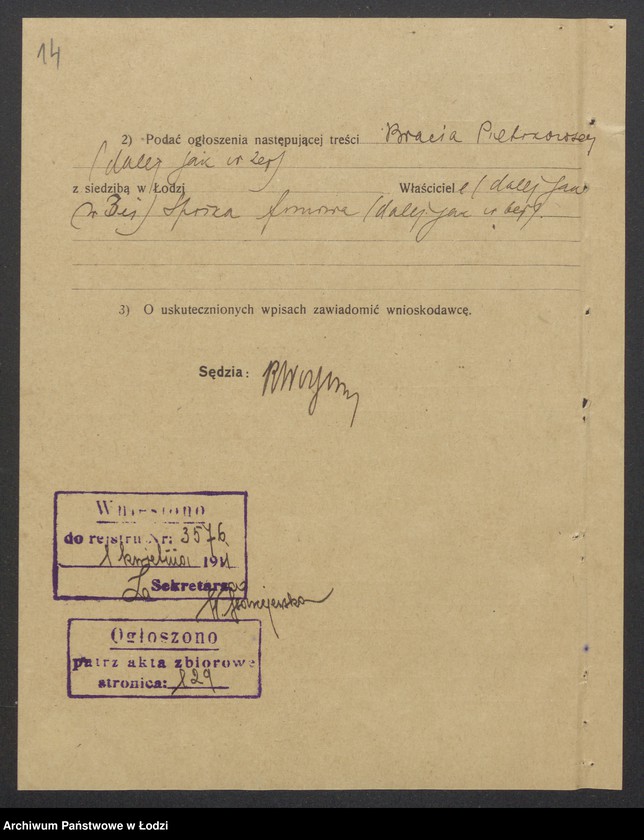 14
2) Podać ogłoszenia następującej treści Bracia Pietrzowscy
(dalej jak w
z siedzibą w Łodzi Właściciele (dalej jak
w Spółka firmowa (dalej jak w
3) O uskutecznionych wpisach zawiadomić wnioskodawcę.
Sędzia:
Wniesiono
do rejestru Nr. 3576
1 kwietnia 194
Sekretarz
Ogłoszono
patrz akta zbiorowe
stronica: 129
Archiwum Państwowe w Łodzi